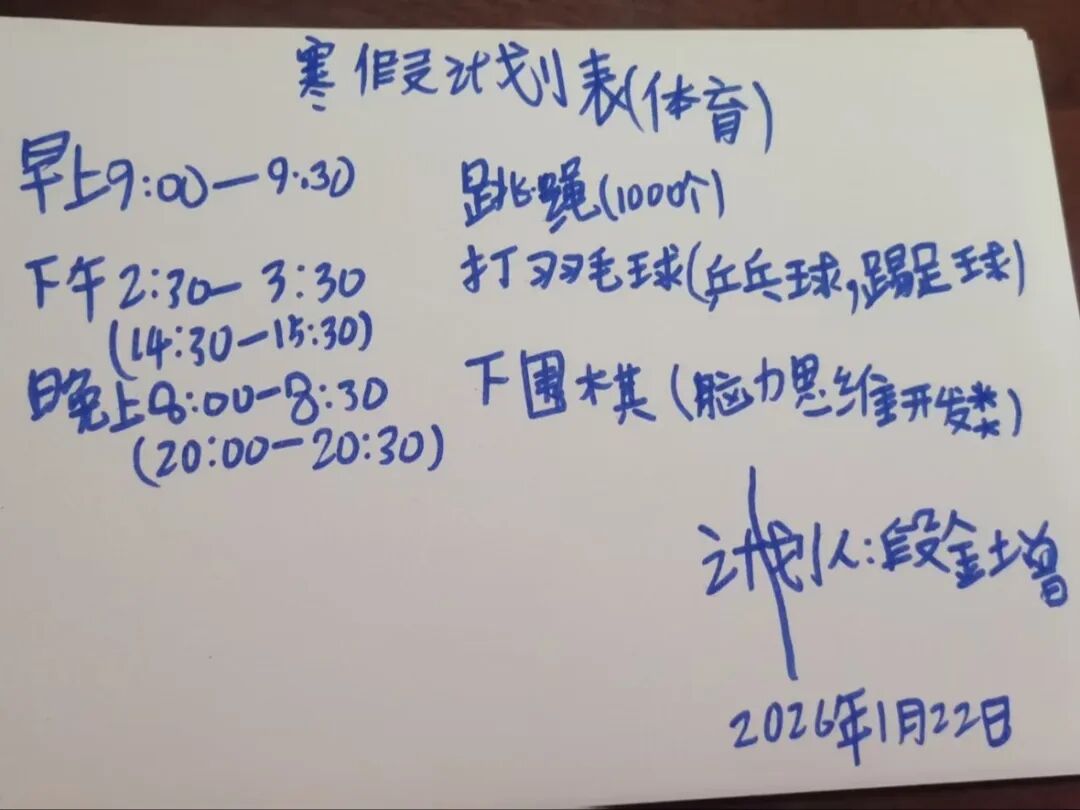 寒假计划表(体育)
早上9:00—9:30 跳绳(1000个)
下午2:30—3:30 打羽毛球(乒乓球,踢足球)
(14:30—15:30)
晚上8:00—8:30 下围棋(脑力思维开发类)
(20:00—20:30)
计划人:段金增
2026年1月22日